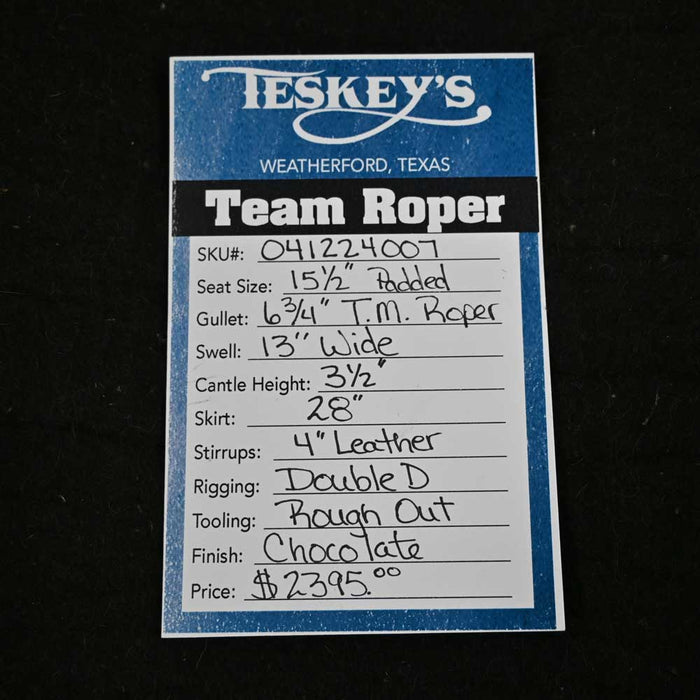 TESKEY'S
WEATHERFORD, TEXAS
Team Roper
SKU#: 041224007
Seat Size: 15½" Padded
Gullet: 6¾" T.M. Roper
Swell: 13" Wide
Cantle Height: 3½"
Skirt: 28"
Stirrups: 4" Leather
Rigging: Double D
Tooling: Rough Out
Finish: Chocolate
Price: $2395.00